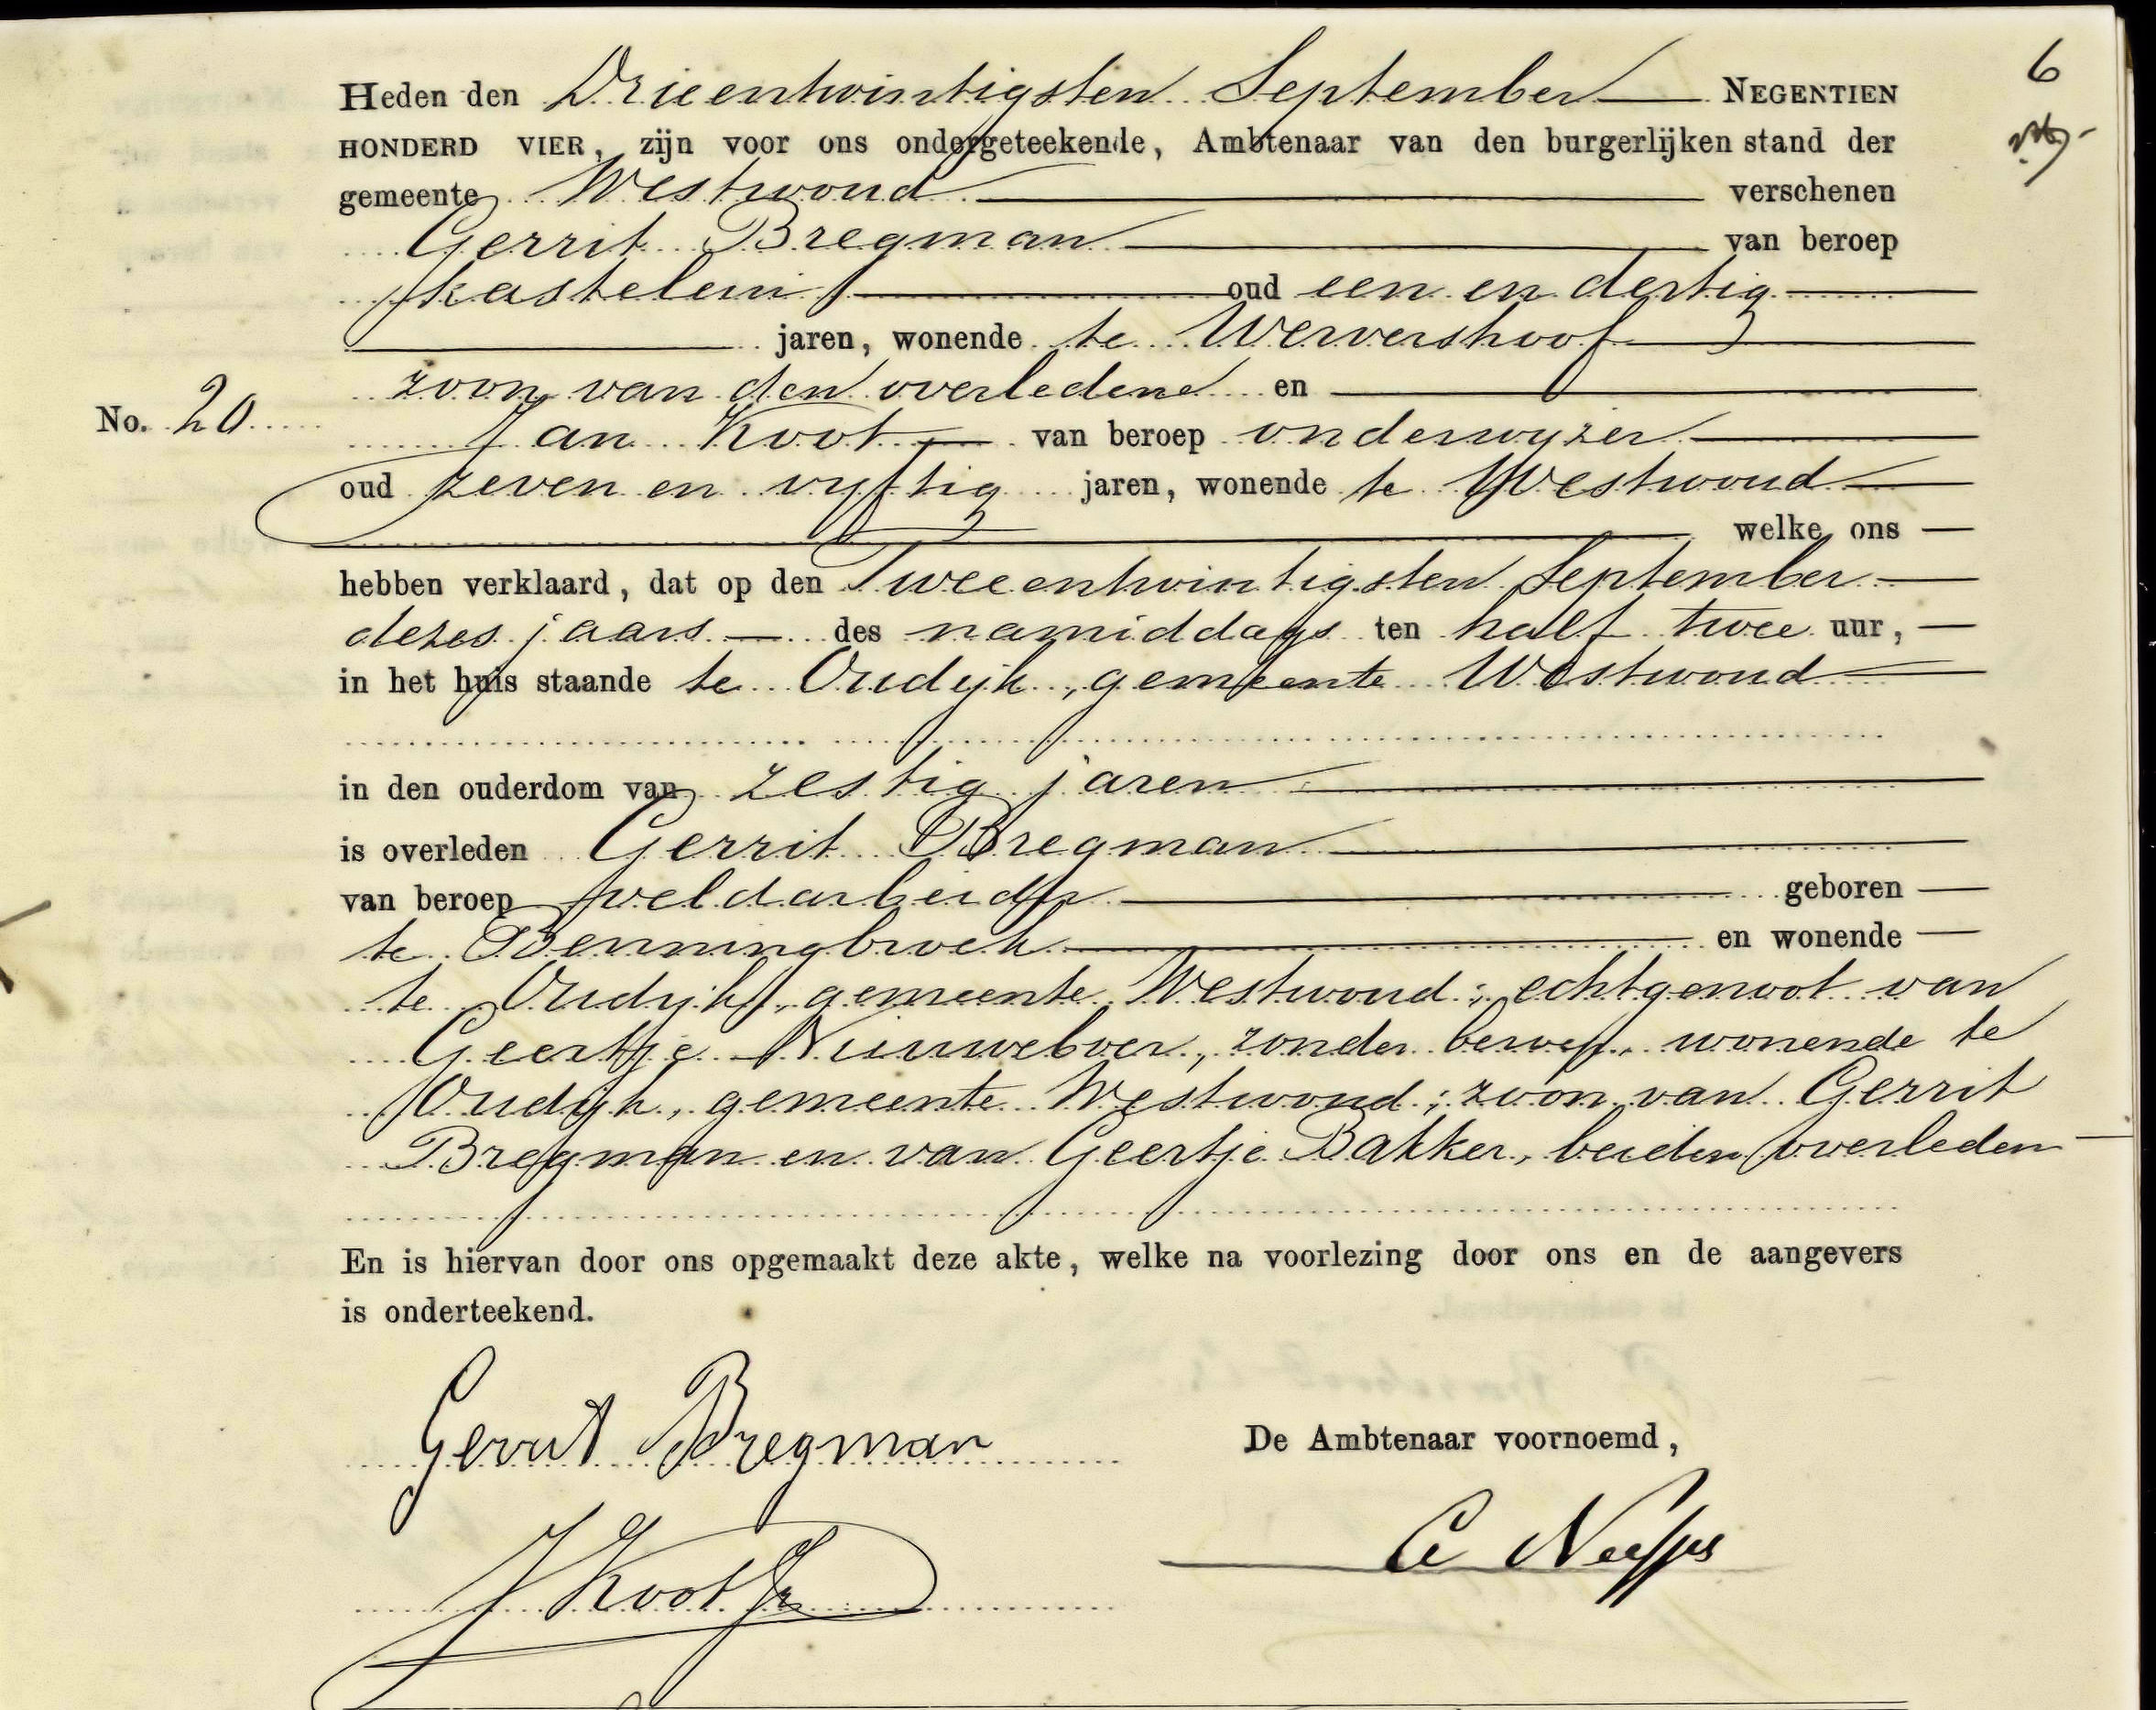 6
Heden den Drieentwintigsten September NEGENTIEN
HONDERD VIER, zijn voor ons ondergeteekende, Ambtenaar van den burgerlijken stand der
gemeente Westwoud verschenen
Gerrit Bregman van beroep
kastelein oud een en dertig
jaren, wonende te Wervershoof
zoon van den overledene en
No. 20
Jan Koot van beroep onderwyzer
oud zeven en vyftig jaren, wonende te Westwoud
welke ons
hebben verklaard, dat op den Tweeentwintigsten September
dezes jaars des namiddags ten half twee uur,
in het huis staande te Oudijk, gemeente Westwoud
in den ouderdom van zestig jaren
is overleden Gerrit Bregman
van beroep veldarbeider geboren
te Benningbroek en wonende
te Oudijk, gemeente Westwoud; echtgenoot van
Geertje Nieuweboer, zonder beroep, wonende te
Oudijk, gemeente Westwoud; zoon van Gerrit
Bregman en van Geertje Bakker, beiden overleden
En is hiervan door ons opgemaakt deze akte, welke na voorlezing door ons en de aangevers
is onderteekend.
Gerrit Bregman
De Ambtenaar voornoemd,
J Koot Jz